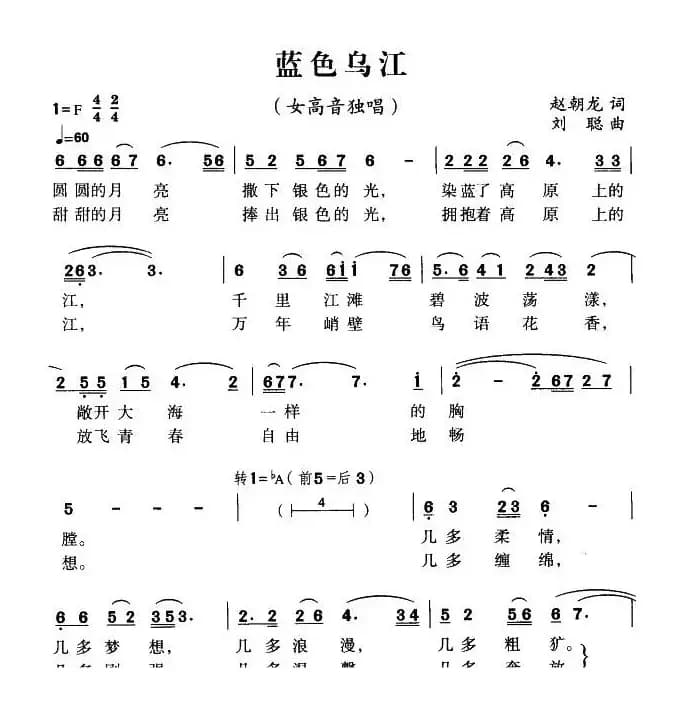 蓝色乌江
1=F 4/4 2/4
（女高音独唱）
赵朝龙 词
刘 聪 曲
♩=60
6 66 67 6. 56 | 52 567 6 - | 222 26 4. 33
圆圆的月 亮 撒下银色的光， 染蓝了高 原 上的
甜甜的月 亮 捧出银色的光， 拥抱着高 原 上的
263. 3. | 6 36 6ii 76 | 5.641 243 2 |
江， 千里江滩 碧波荡 漾，
江， 万年峭壁 鸟语花 香，
2 55 15 4. 2 | 677. 7. i | 2 - 267 27
敞开大 海 一样 的胸
放飞青 春 自由 地畅
5 - - - | 转1=♭A（前5=后3） （ 4 ） | 63 23 6 - |
膛。 几多柔 情，
想。 几多缠 绵，
66 52 353. | 2. 2 26 4. 34 | 52 566 67. |
几多梦 想， 几多浪 漫， 几多粗 犷。
几多